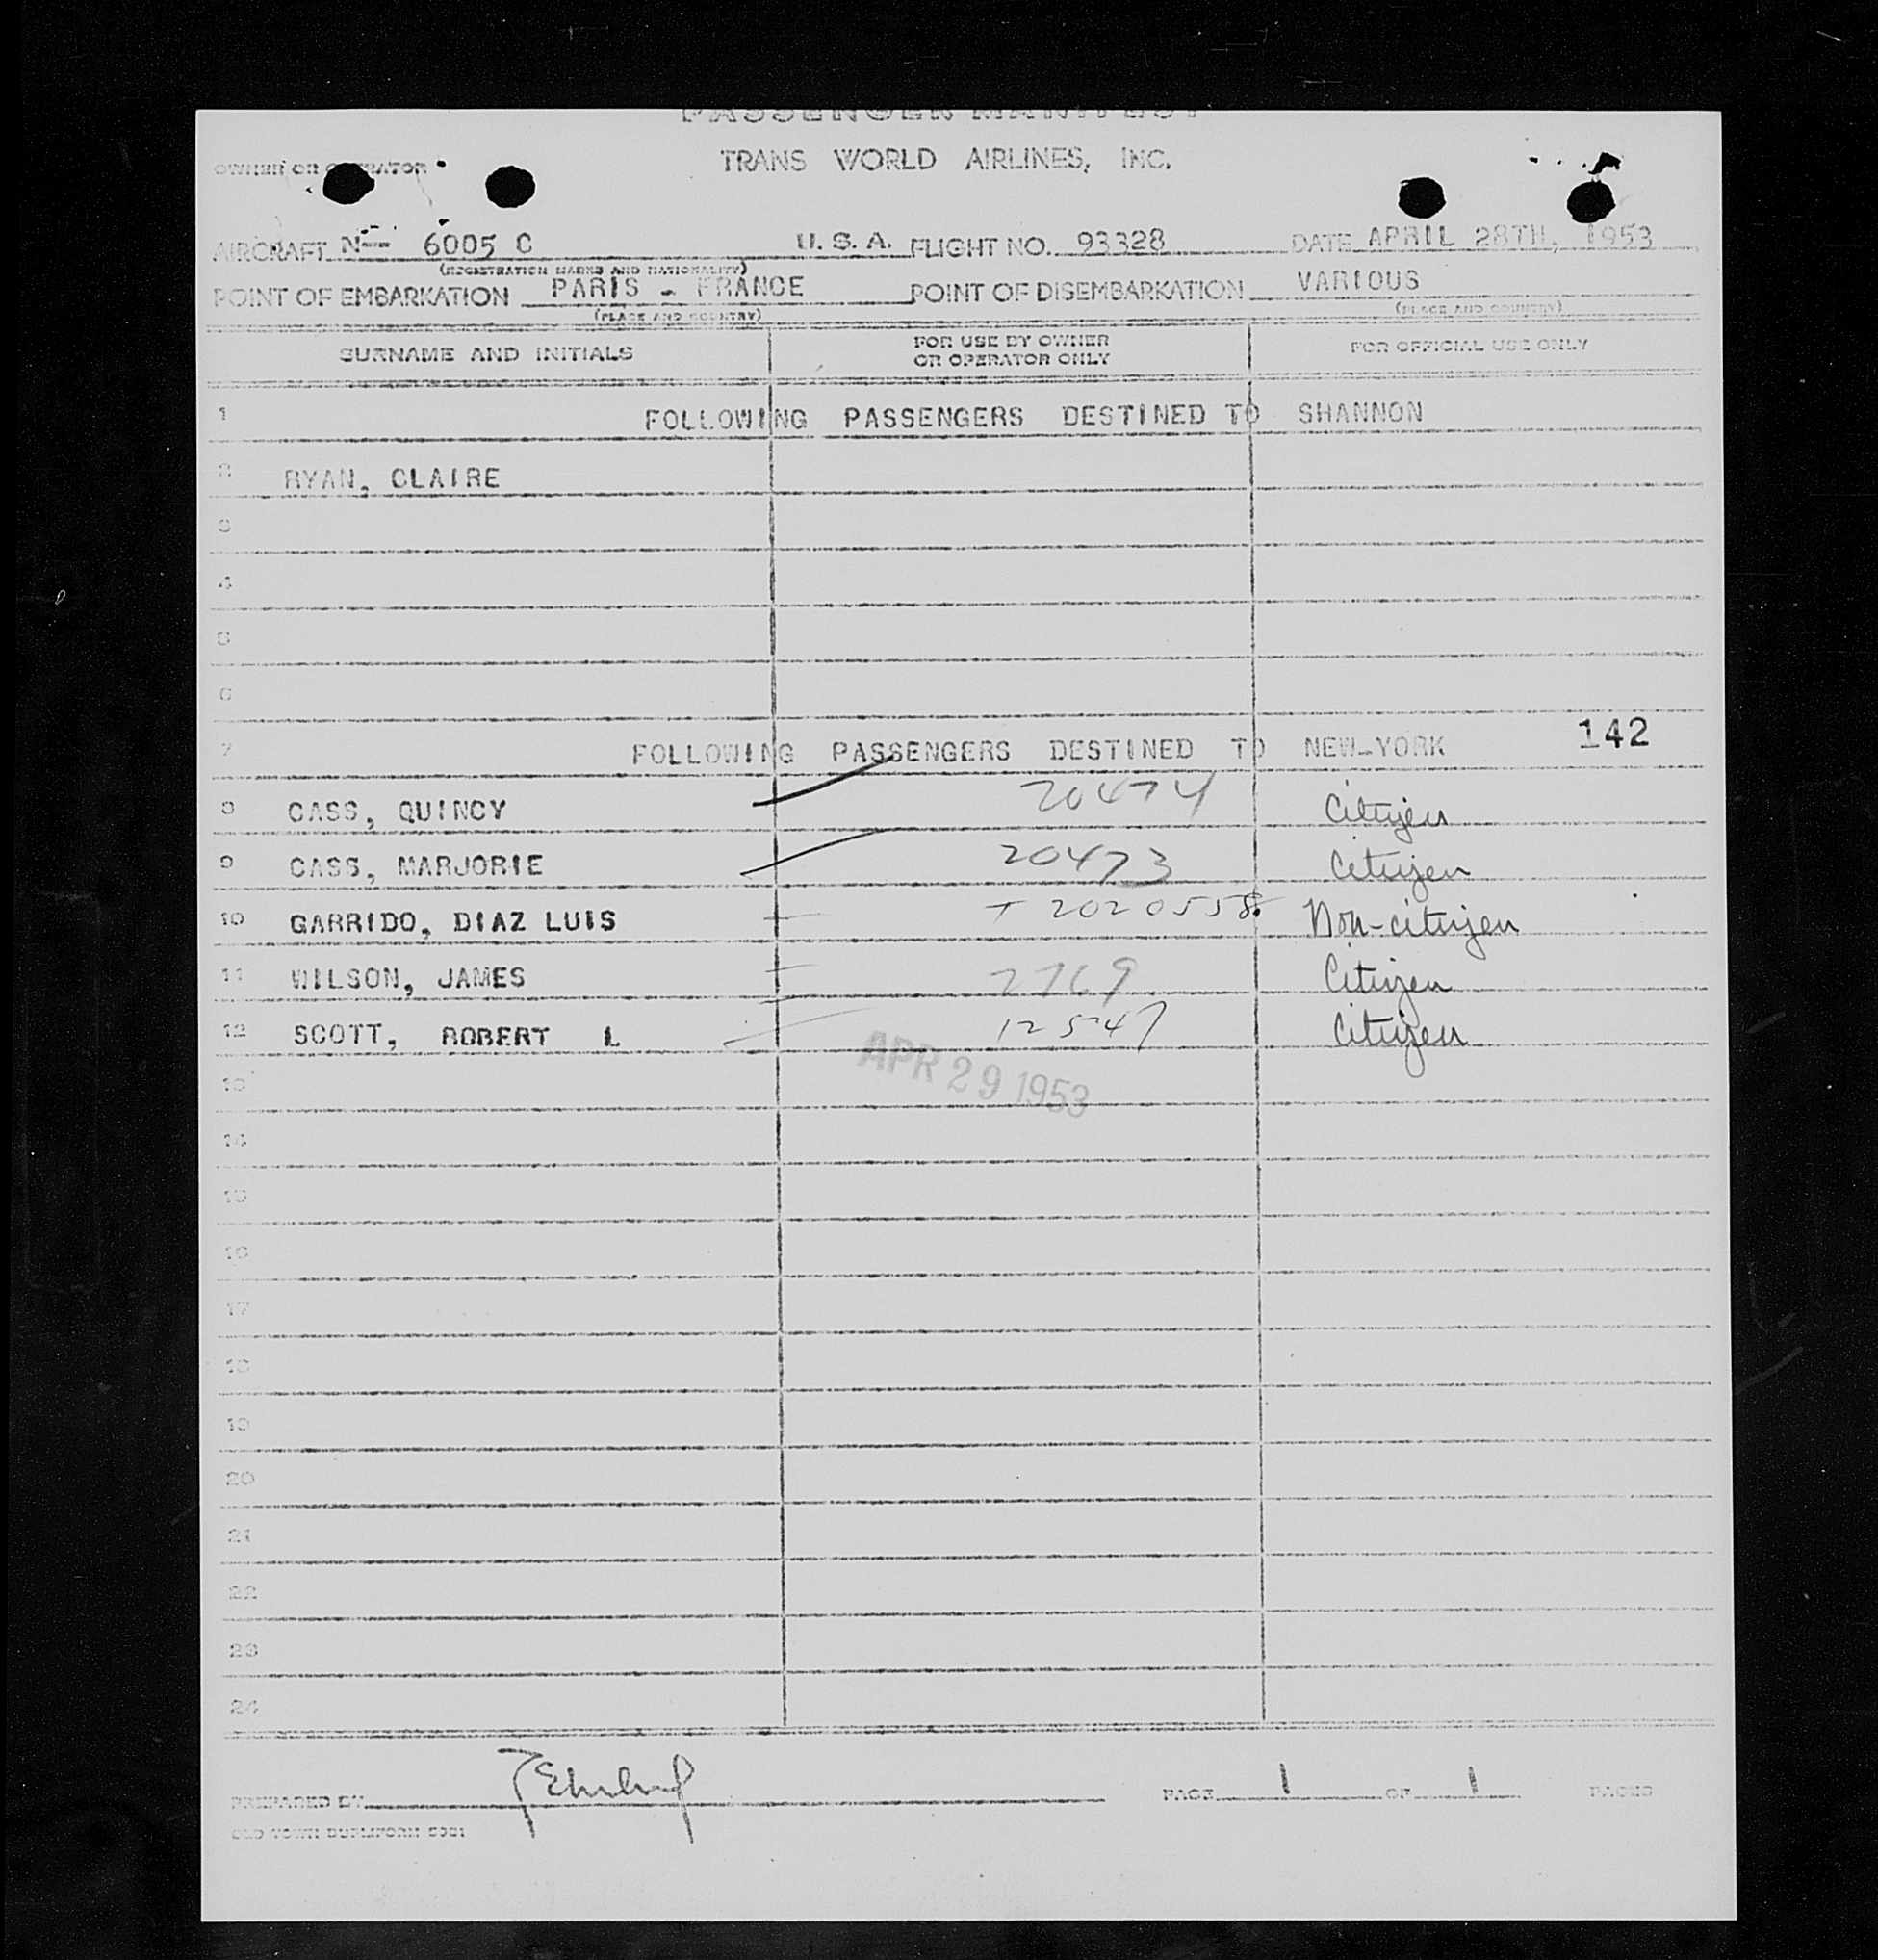 PASSENGER MANIFEST
TRANS WORLD AIRLINES, INC.
OWNER OR OPERATOR
AIRCRAFT N-- 6005 C U. S. A. FLIGHT NO. 93328 DATE APRIL 28TH, 1953
(REGISTRATION MARKS AND NATIONALITY)
POINT OF EMBARKATION PARIS - FRANCE POINT OF DISEMBARKATION VARIOUS
(PLACE AND COUNTRY) (PLACE AND COUNTRY)
SURNAME AND INITIALS FOR USE BY OWNER OR OPERATOR ONLY FOR OFFICIAL USE ONLY
1 FOLLOWING PASSENGERS DESTINED TO SHANNON
2 RYAN, CLAIRE
3
4
5
6
142
7 FOLLOWING PASSENGERS DESTINED TO NEW-YORK
8 CASS, QUINCY 20474 Citizen
9 CASS, MARJORIE 20473 Citizen
10 GARRIDO, DIAZ LUIS T 2020558 Non-citizen
11 WILSON, JAMES 2769 Citizen
12 SCOTT, ROBERT L 12547 Citizen
APR 29 1953
13
14
15
16
17
18
19
20
21
22
23
24
PREPARED BY PAGE 1 OF 1 PAGES